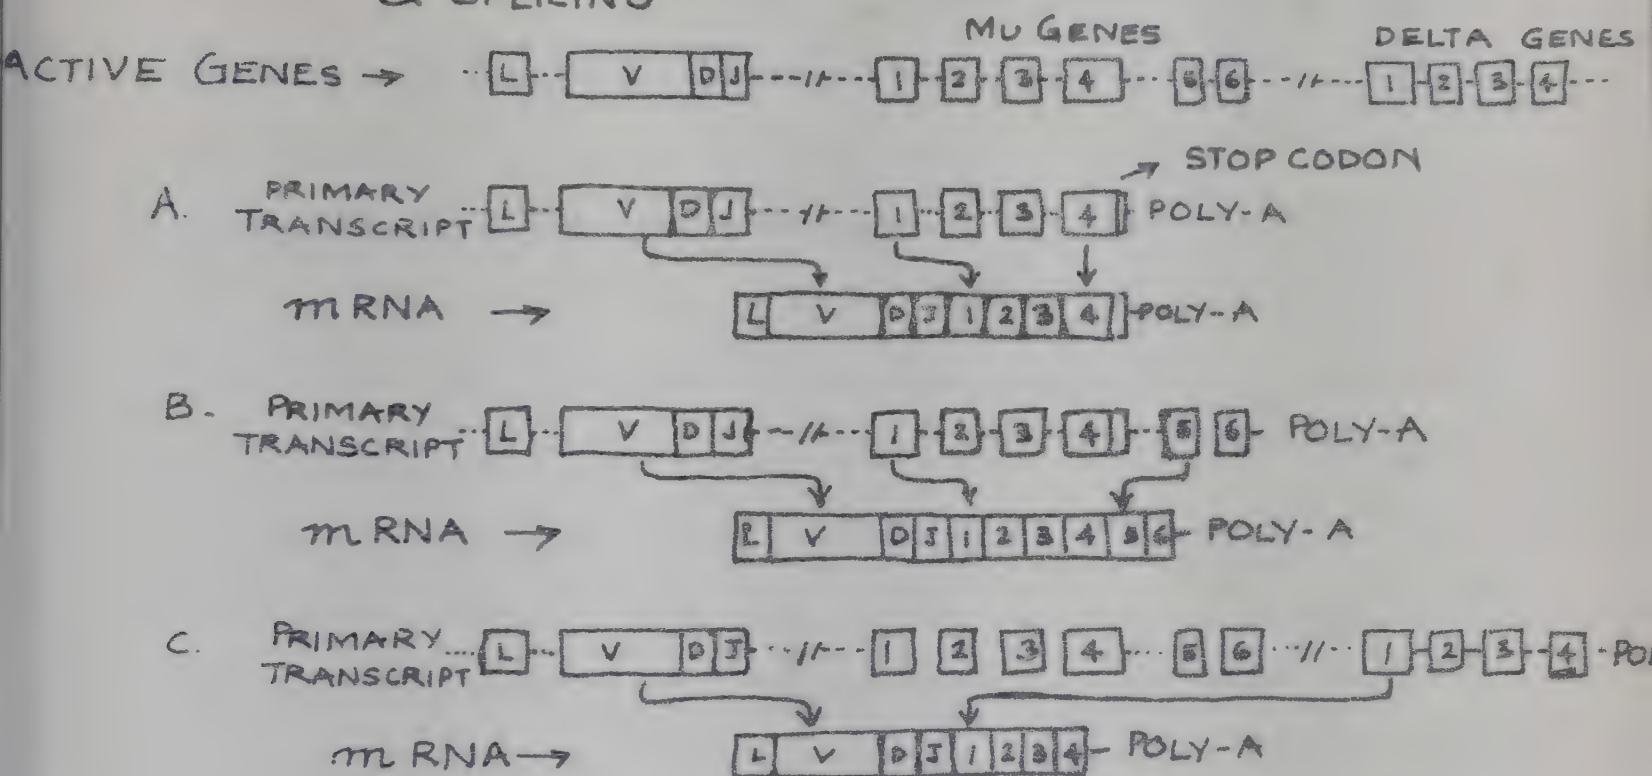 & SPLICING
MU GENES DELTA GENES
ACTIVE GENES → L V D J 1 2 3 4 5 6 1 2 3 4
STOP CODON
A. PRIMARY TRANSCRIPT L V D J 1 2 3 4 POLY-A
mRNA → L V D J 1 2 3 4 POLY-A
B. PRIMARY TRANSCRIPT L V D J 1 2 3 4 5 6 POLY-A
mRNA → L V D J 1 2 3 4 5 6 POLY-A
C. PRIMARY TRANSCRIPT L V D J 1 2 3 4 5 6 1 2 3 4
mRNA → L V D J 1 2 3 4 POLY-A